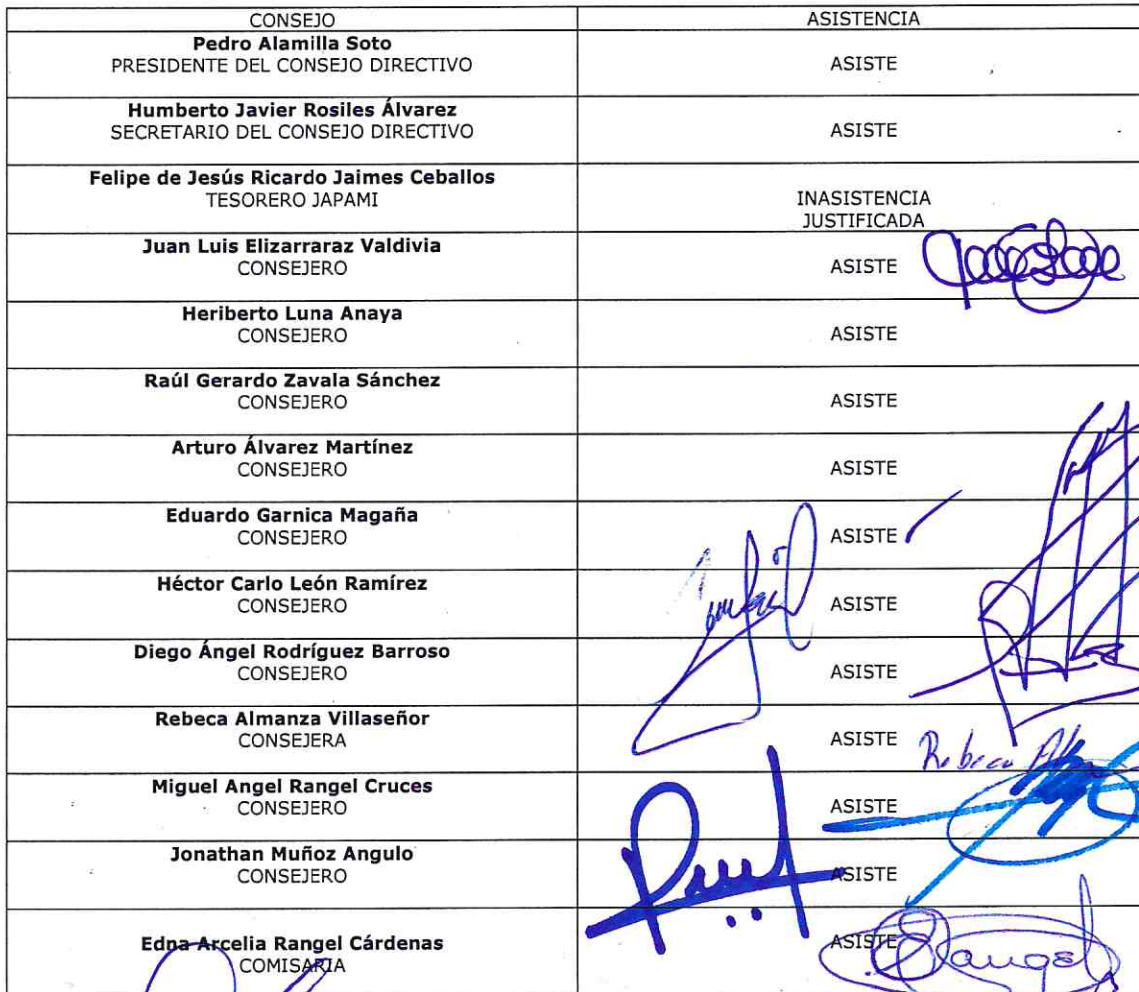 CONSEJO ASISTENCIA
Pedro Alamilla Soto
PRESIDENTE DEL CONSEJO DIRECTIVO ASISTE
Humberto Javier Rosiles Álvarez
SECRETARIO DEL CONSEJO DIRECTIVO ASISTE
Felipe de Jesús Ricardo Jaimes Ceballos
TESORERO JAPAMI INASISTENCIA
JUSTIFICADA
Juan Luis Elizarraraz Valdivia
CONSEJERO ASISTE
Heriberto Luna Anaya
CONSEJERO ASISTE
Raúl Gerardo Zavala Sánchez
CONSEJERO ASISTE
Arturo Álvarez Martínez
CONSEJERO ASISTE
Eduardo Garnica Magaña
CONSEJERO ASISTE
Héctor Carlo León Ramírez
CONSEJERO ASISTE
Diego Ángel Rodríguez Barroso
CONSEJERO ASISTE
Rebeca Almanza Villaseñor
CONSEJERA ASISTE Rebeca
Miguel Angel Rangel Cruces
CONSEJERO ASISTE
Jonathan Muñoz Angulo
CONSEJERO ASISTE
Edna Arcelia Rangel Cárdenas
COMISARIA ASISTE